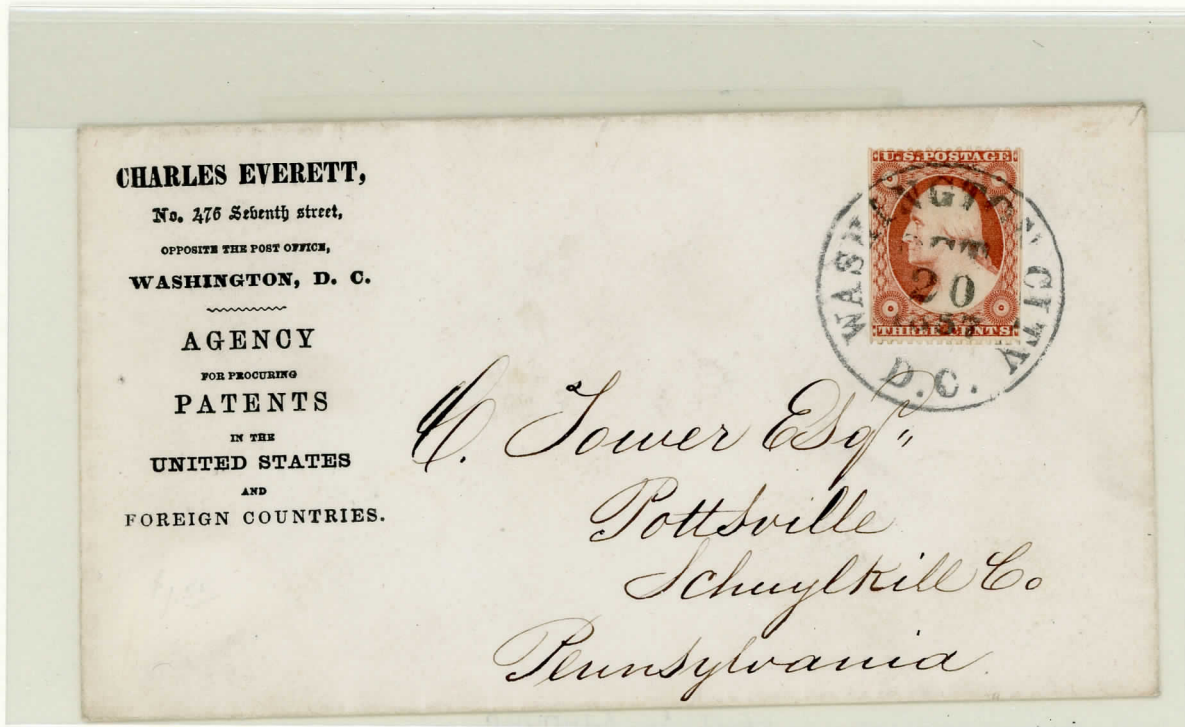 CHARLES EVERETT,
No. 476 Seventh street,
OPPOSITE THE POST OFFICE,
WASHINGTON, D. C.
AGENCY
FOR PROCURING
PATENTS
IN THE
UNITED STATES
AND
FOREIGN COUNTRIES.
U.S. POSTAGE
THREE CENTS
WASHINGTON CITY
20
D.C.
C. Tower Esqr
Pottsville
Schuylkill Co
Pennsylvania